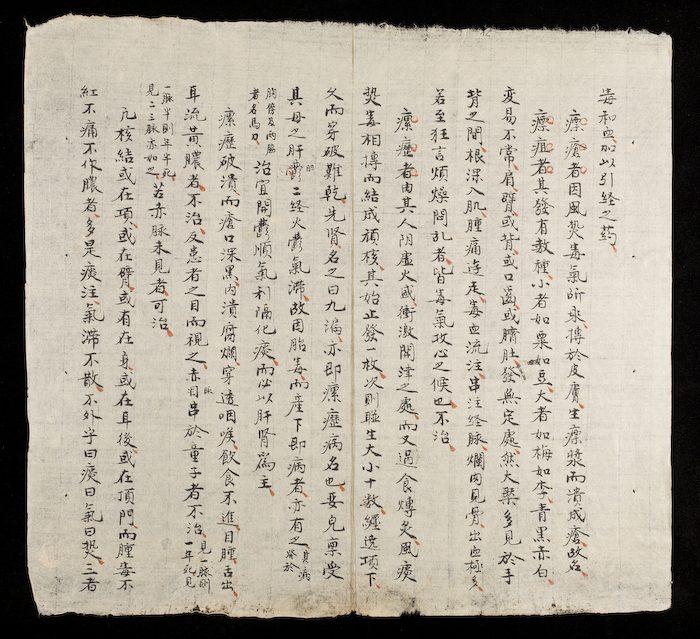 毒和血加以引经之药
瘭瘡者因風熱毒氣所乘搏於皮膚生瘭漿而潰成瘡故名
瘭疽者其發有数種小者如粟如豆大者如梅如李青黑赤白
变易不常肩臂或背或口齒或臍肚發無定處然大槩多見於手
背之間根深入肌腫痛走毒血流注串注經脉爛肉見骨出血極多
若至狂言煩燥悶乱者皆毒氣攻心之候也不治
瘰癧者由其人阴虚火或衝激関津之處而又過食煿炙風痰
熱毒相搏而結成頑核其始止發一枚次則聮生大小十数纏遶項下
久而穿破難乾先賢名之曰九漏亦即瘰癧病名也嬰児禀受
其母之肝胆二経火鬱氣滞故因胎毒而産下即病者亦有之其病發於
胸脇及两腋者名馬刀治宜開鬱順氣利隔化痰而必以肝肾為主
瘰癧破潰而瘡口深黑内潰腐爛穿透咽喉飲食不進目腫舌出
耳流黄膿者不治反患者之目而視之赤脉串於童子者不治見一脉則一年死見
一脉半則年半死見二三脉亦如之若赤脉未見者可治
凢核結或在項或在臂或有在身或在耳後或在頂門而腫毒不
紅不痛不作膿者多是痰注氣滞不散不外乎曰痰曰氣曰熱三者